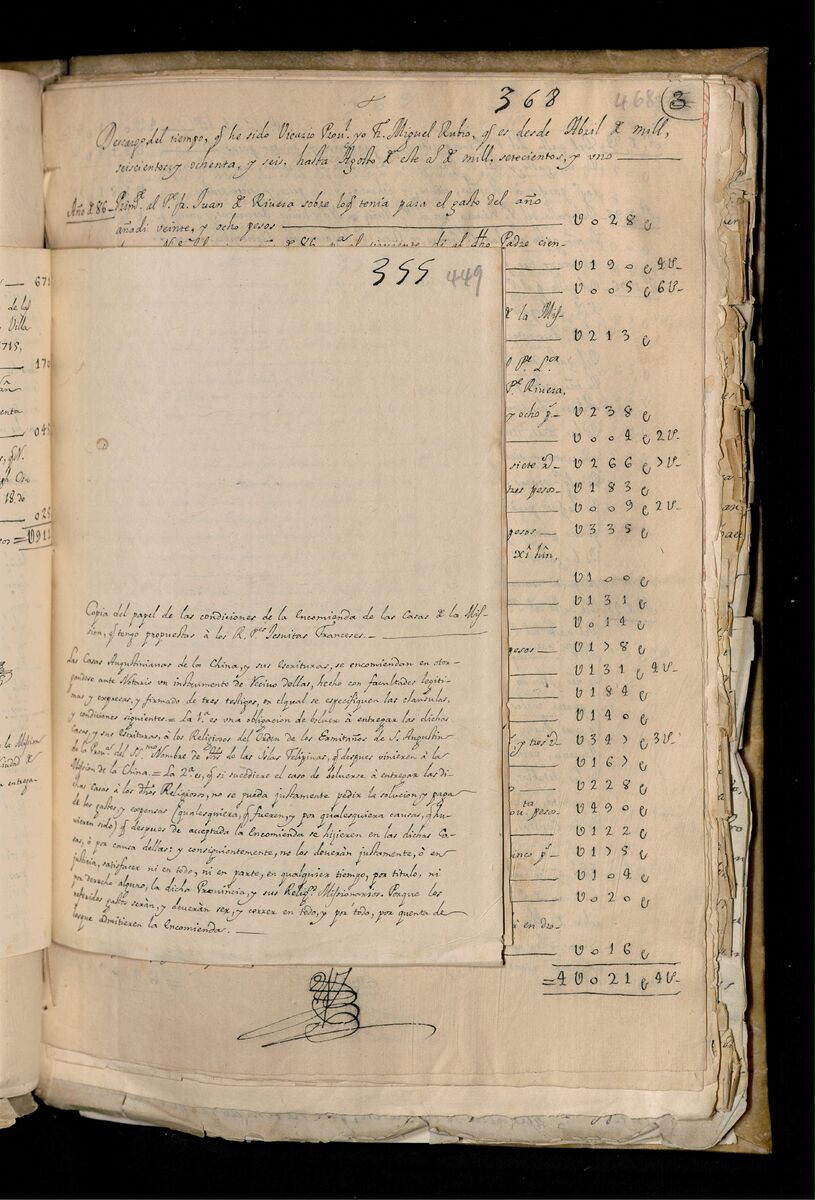 368
468
3
Descargo del tiempo, q̃ he sido Vicario Prou.l yo Fr. Miguel Rubio, q̃ es desde Abril de mill,
seiscientos, y ochenta, y seis, hasta Agosto de este al de mill, setecientos, y uno
Año de 86 - al P.e fr. Juan de Rivera sobre lo q̃ tenia para el gasto del año
añadi veinte, y ocho pesos U028
al dho Padre cien-
U190 4U-
U005 6U-
de la Mis-
U213
P.e Rivera,
y ocho p.s U238
U004 2U-
siete U266 7U-
tres pesos U183
U009 2U-
pesos U335
U100
U131
U014
pesos U178
U131 4U-
U184
U140
y tres U347 3U-
U167
U228
pesos U490
U122
cinco p.s U175
U104
U020
U016
=4U021 4U-
355
449
Copia del papel de las condiciones de la Encomienda de las Casas de la Mis-
sion, q̃ tengo propuestas à los R. P.es Jesuitas Franceses.
Las Casas Augustinianas de la China, y sus Escrituras, se encomiendan en otor-
gandose ante Notario vn instrumento de Reciuo dellas, hecho con facultades legiti-
mas y expresas, y firmado de tres testigos, en el qual se especifiquen las clausulas,
y condiciones siguientes = La 1.a es vna obligacion de boluer à entregar las dichas
Casas, y sus Escrituras, à los Religiosos del Orden de los Ermitaños de S. Augustin
de la Prou.a del S.mo Nombre de Jhs de las Islas Felipinas, q̃ despues vinieren à la
Mission de la China = La 2.a es, q̃ si sucediere el caso de boluerse à entregar las di-
chas Casas à los dhos Religiosos, no se pueda justamente pedir la solucion, y paga
de los gastos, y expensas (qualesquiera, q̃ fueren, y por qualesquiera causas, q̃ hu-
uieran sido) q̃ despues de aceptada la Encomienda se hizieren en las dichas Ca-
sas, ò por causa dellas: y consiguientemente, no las deueràn justamente, ò en
justicia, satisfacer ni en todo, ni en parte, en qualquier tiempo, por titulo, ni
por derecho alguno, la dicha Prouincia, y sus Relig.s Missionarios. Porque los
referidos gastos seràn, y deueràn ser, y correr en todo, y por todo, por quenta de
los que admitieren la Encomienda.
671
de los
Villa
1715,
170
enta
18. de
025
U911
la Mission
Ciudad de
entrega-